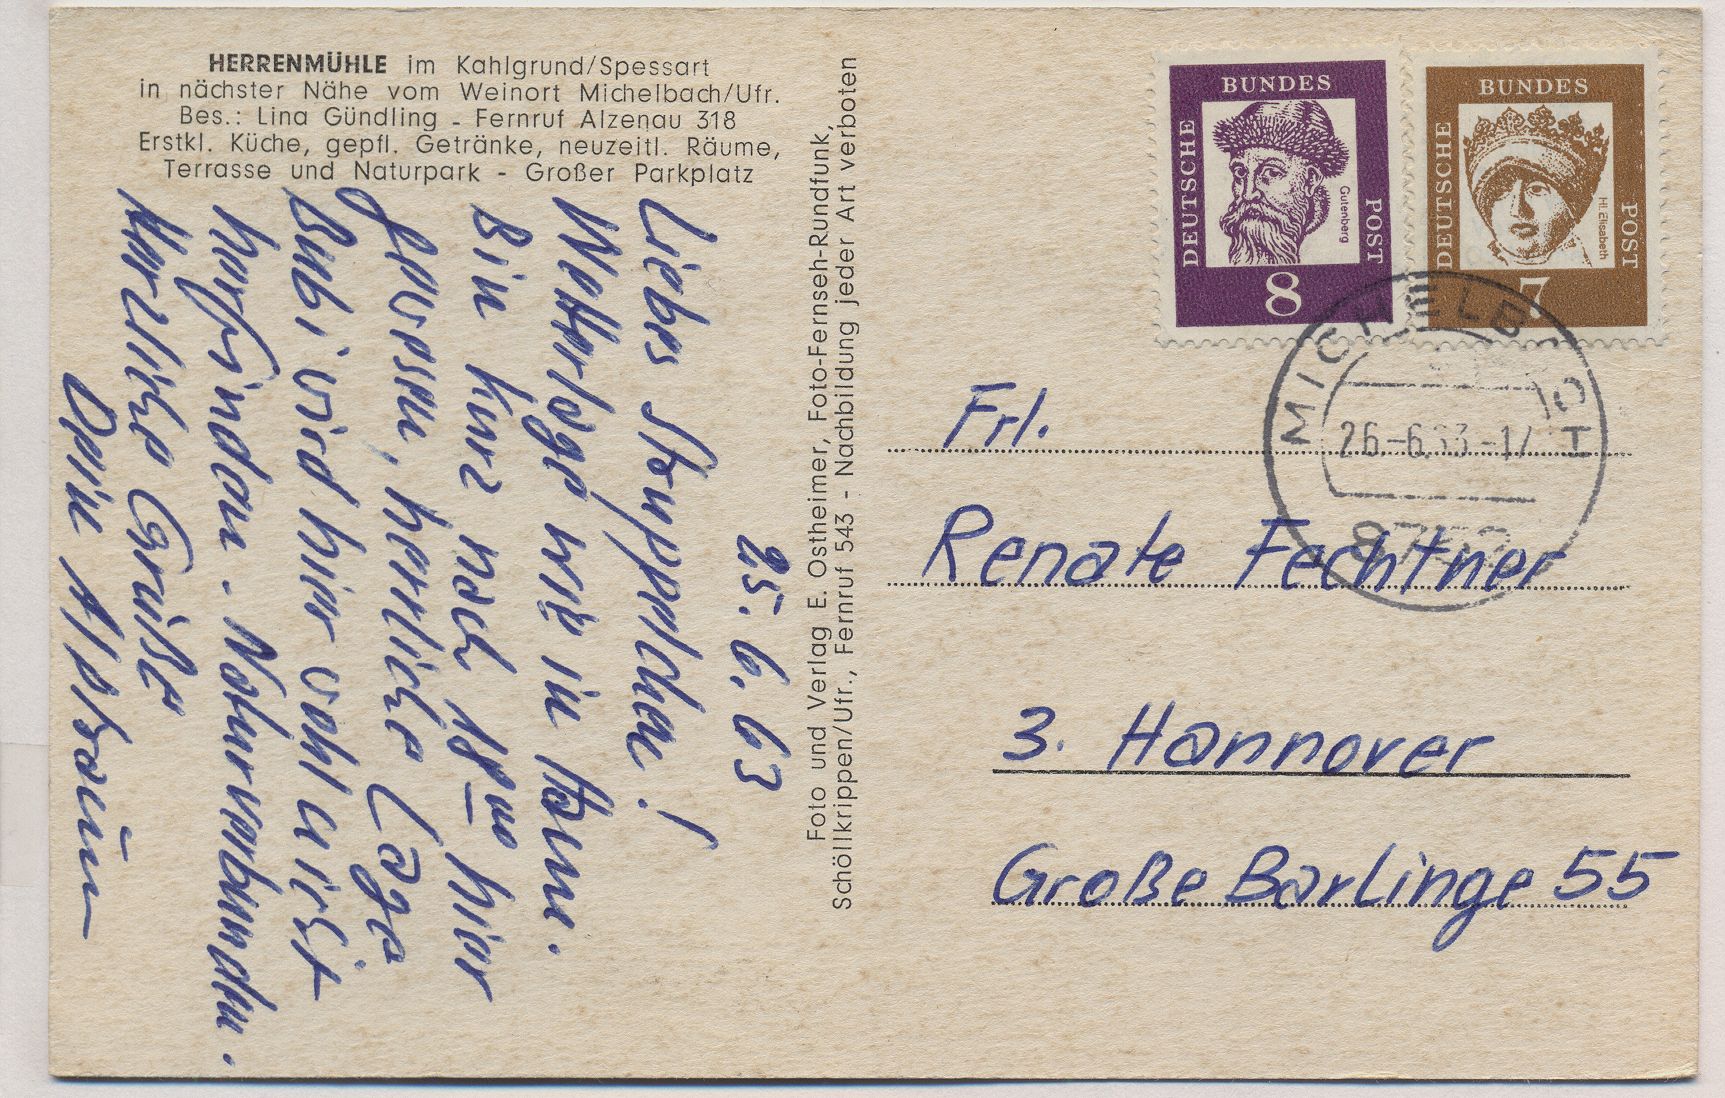 HERRENMÜHLE im Kahlgrund/Spessart
in nächster Nähe vom Weinort Michelbach/Ufr.
Bes.: Lina Gündling - Fernruf Alzenau 318
Erstkl. Küche, gepfl. Getränke, neuzeitl. Räume,
Terrasse und Naturpark - Großer Parkplatz
25. 6. 63
Liebes
Wetterlage wie in
Bin kurz nach 18 hier
gewesen, herrliche Lage
Bubi wird hier wohl
hinfinden. Naturverbunden.
Herzliche Grüße
Dein
Foto und Verlag E. Ostheimer, Foto-Fernseh-Rundfunk,
Schöllkrippen/Ufr., Fernruf 543 - Nachbildung jeder Art verboten
DEUTSCHE BUNDES POST
Gutenberg
8
DEUTSCHE BUNDES POST
Hl. Elisabeth
7
MICHELBACH
26.-6.63.-17
Frl.
Renate Fechtner
3. Hannover
Große Barlinge 55